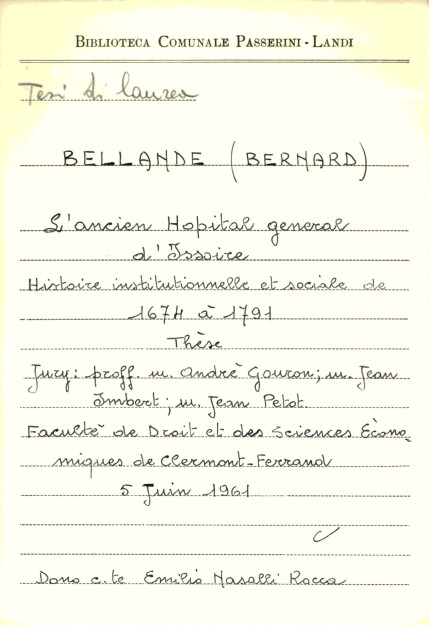 BIBLIOTECA COMUNALE PASSERINI - LANDI
Tesi di laurea
BELLANDE (BERNARD)
L'ancien Hopital general
d'Issoire
Histoire institutionnelle et sociale de
1674 à 1791
Thèse
Jury: proff. m. Andrè Gouron; m. Jean
Imbert; m. Jean Petot.
Faculté de Droit et des Sciences Écono=
miques de Clermont-Ferrand
5 Juin 1961
Dono c.te Emilio Nasalli Rocca